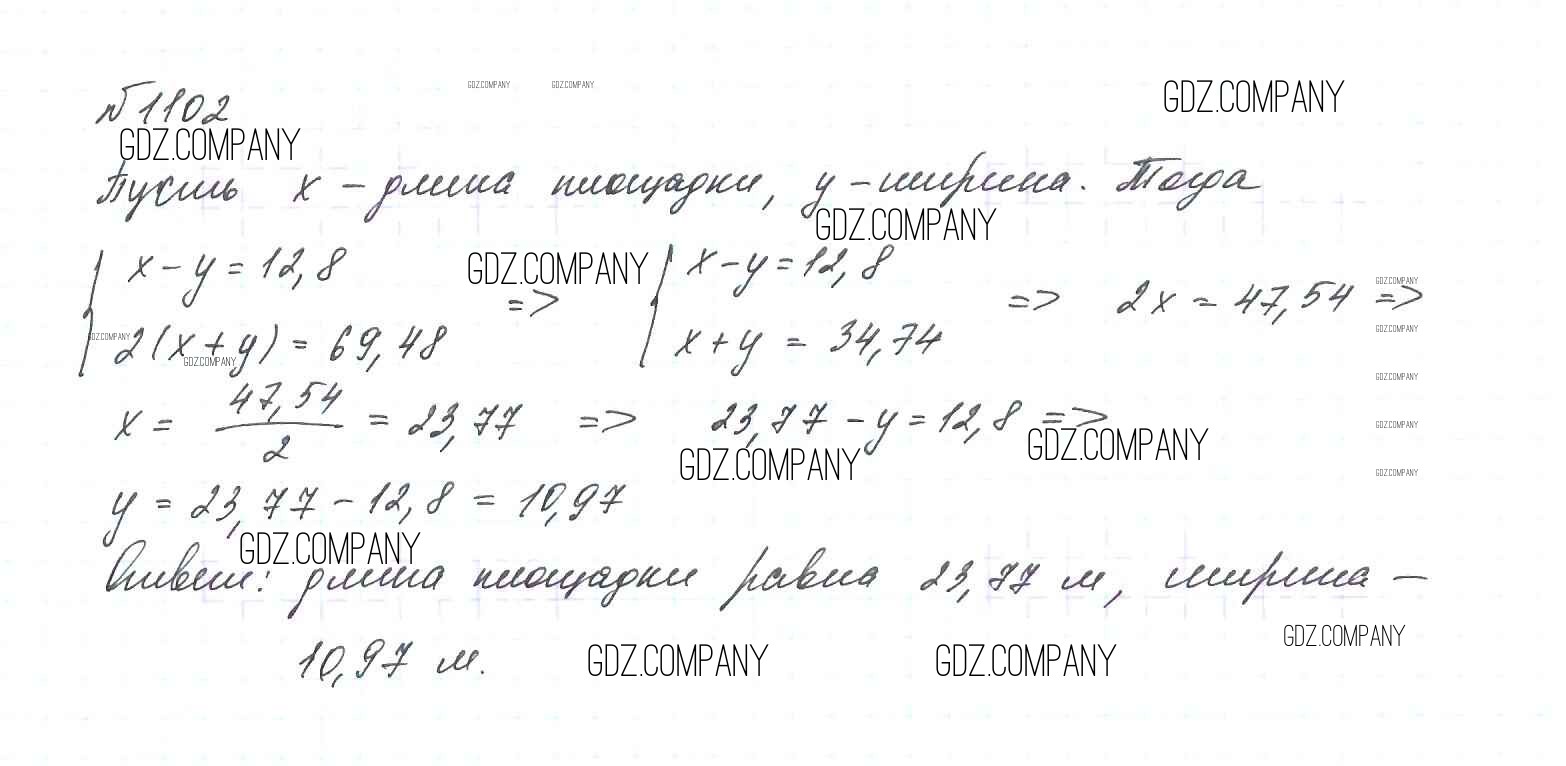 GDZ.COMPANY GDZ.COMPANY GDZ.COMPANY
№1102
GDZ.COMPANY
Пусть x – длина площадки, y – ширина. Тогда
GDZ.COMPANY
x – y = 12,8 GDZ.COMPANY => x – y = 12,8 => 2x = 47,54 =>
GDZ.COMPANY
2(x + y) = 69,48 x + y = 34,74
GDZ.COMPANY GDZ.COMPANY GDZ.COMPANY
GDZ.COMPANY
x = 47,54 / 2 = 23,77 => 23,77 – y = 12,8 =>
GDZ.COMPANY
GDZ.COMPANY GDZ.COMPANY
GDZ.COMPANY
y = 23,77 – 12,8 = 10,97
GDZ.COMPANY
Ответ: длина площадки равна 23,77 м, ширина –
10,97 м.
GDZ.COMPANY GDZ.COMPANY GDZ.COMPANY